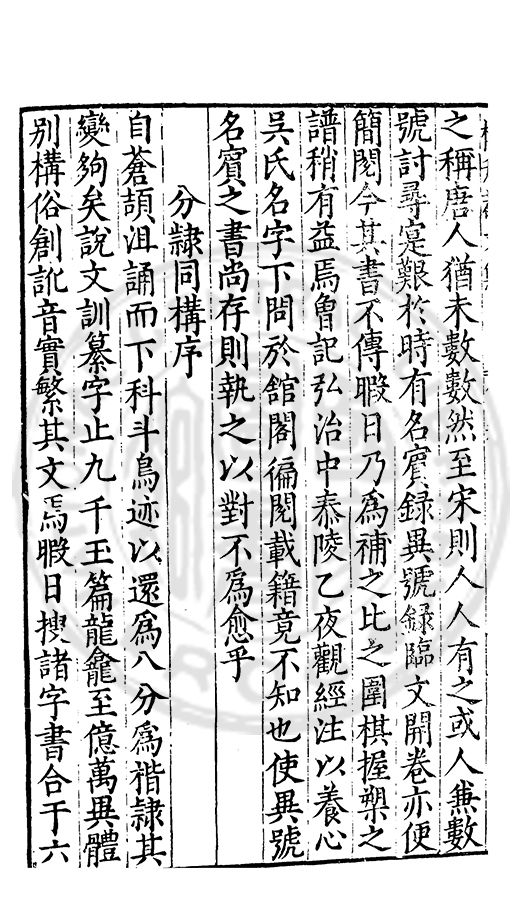 之稱唐人猶未數數然至宋則人人有之或人兼數
號討尋寔艱於時有名賓録異號録臨文開卷亦便
簡閱今其書不傳暇日乃爲補之比之圍棋握槊之
譜稍有益焉曽記弘治中泰陵乙夜觀經注以養心
吳氏名字下問於舘閣徧閱載籍竟不知也使異號
名賓之書尚存則執之以對不爲愈乎
分隸同構序
自蒼頡沮誦而下科斗鳥迹以還爲八分爲楷隸其
變夠矣說文訓纂字止九千玉篇龍龕至億萬異體
別構俗創訛音實繁其文焉暇日搜諸字書合于六